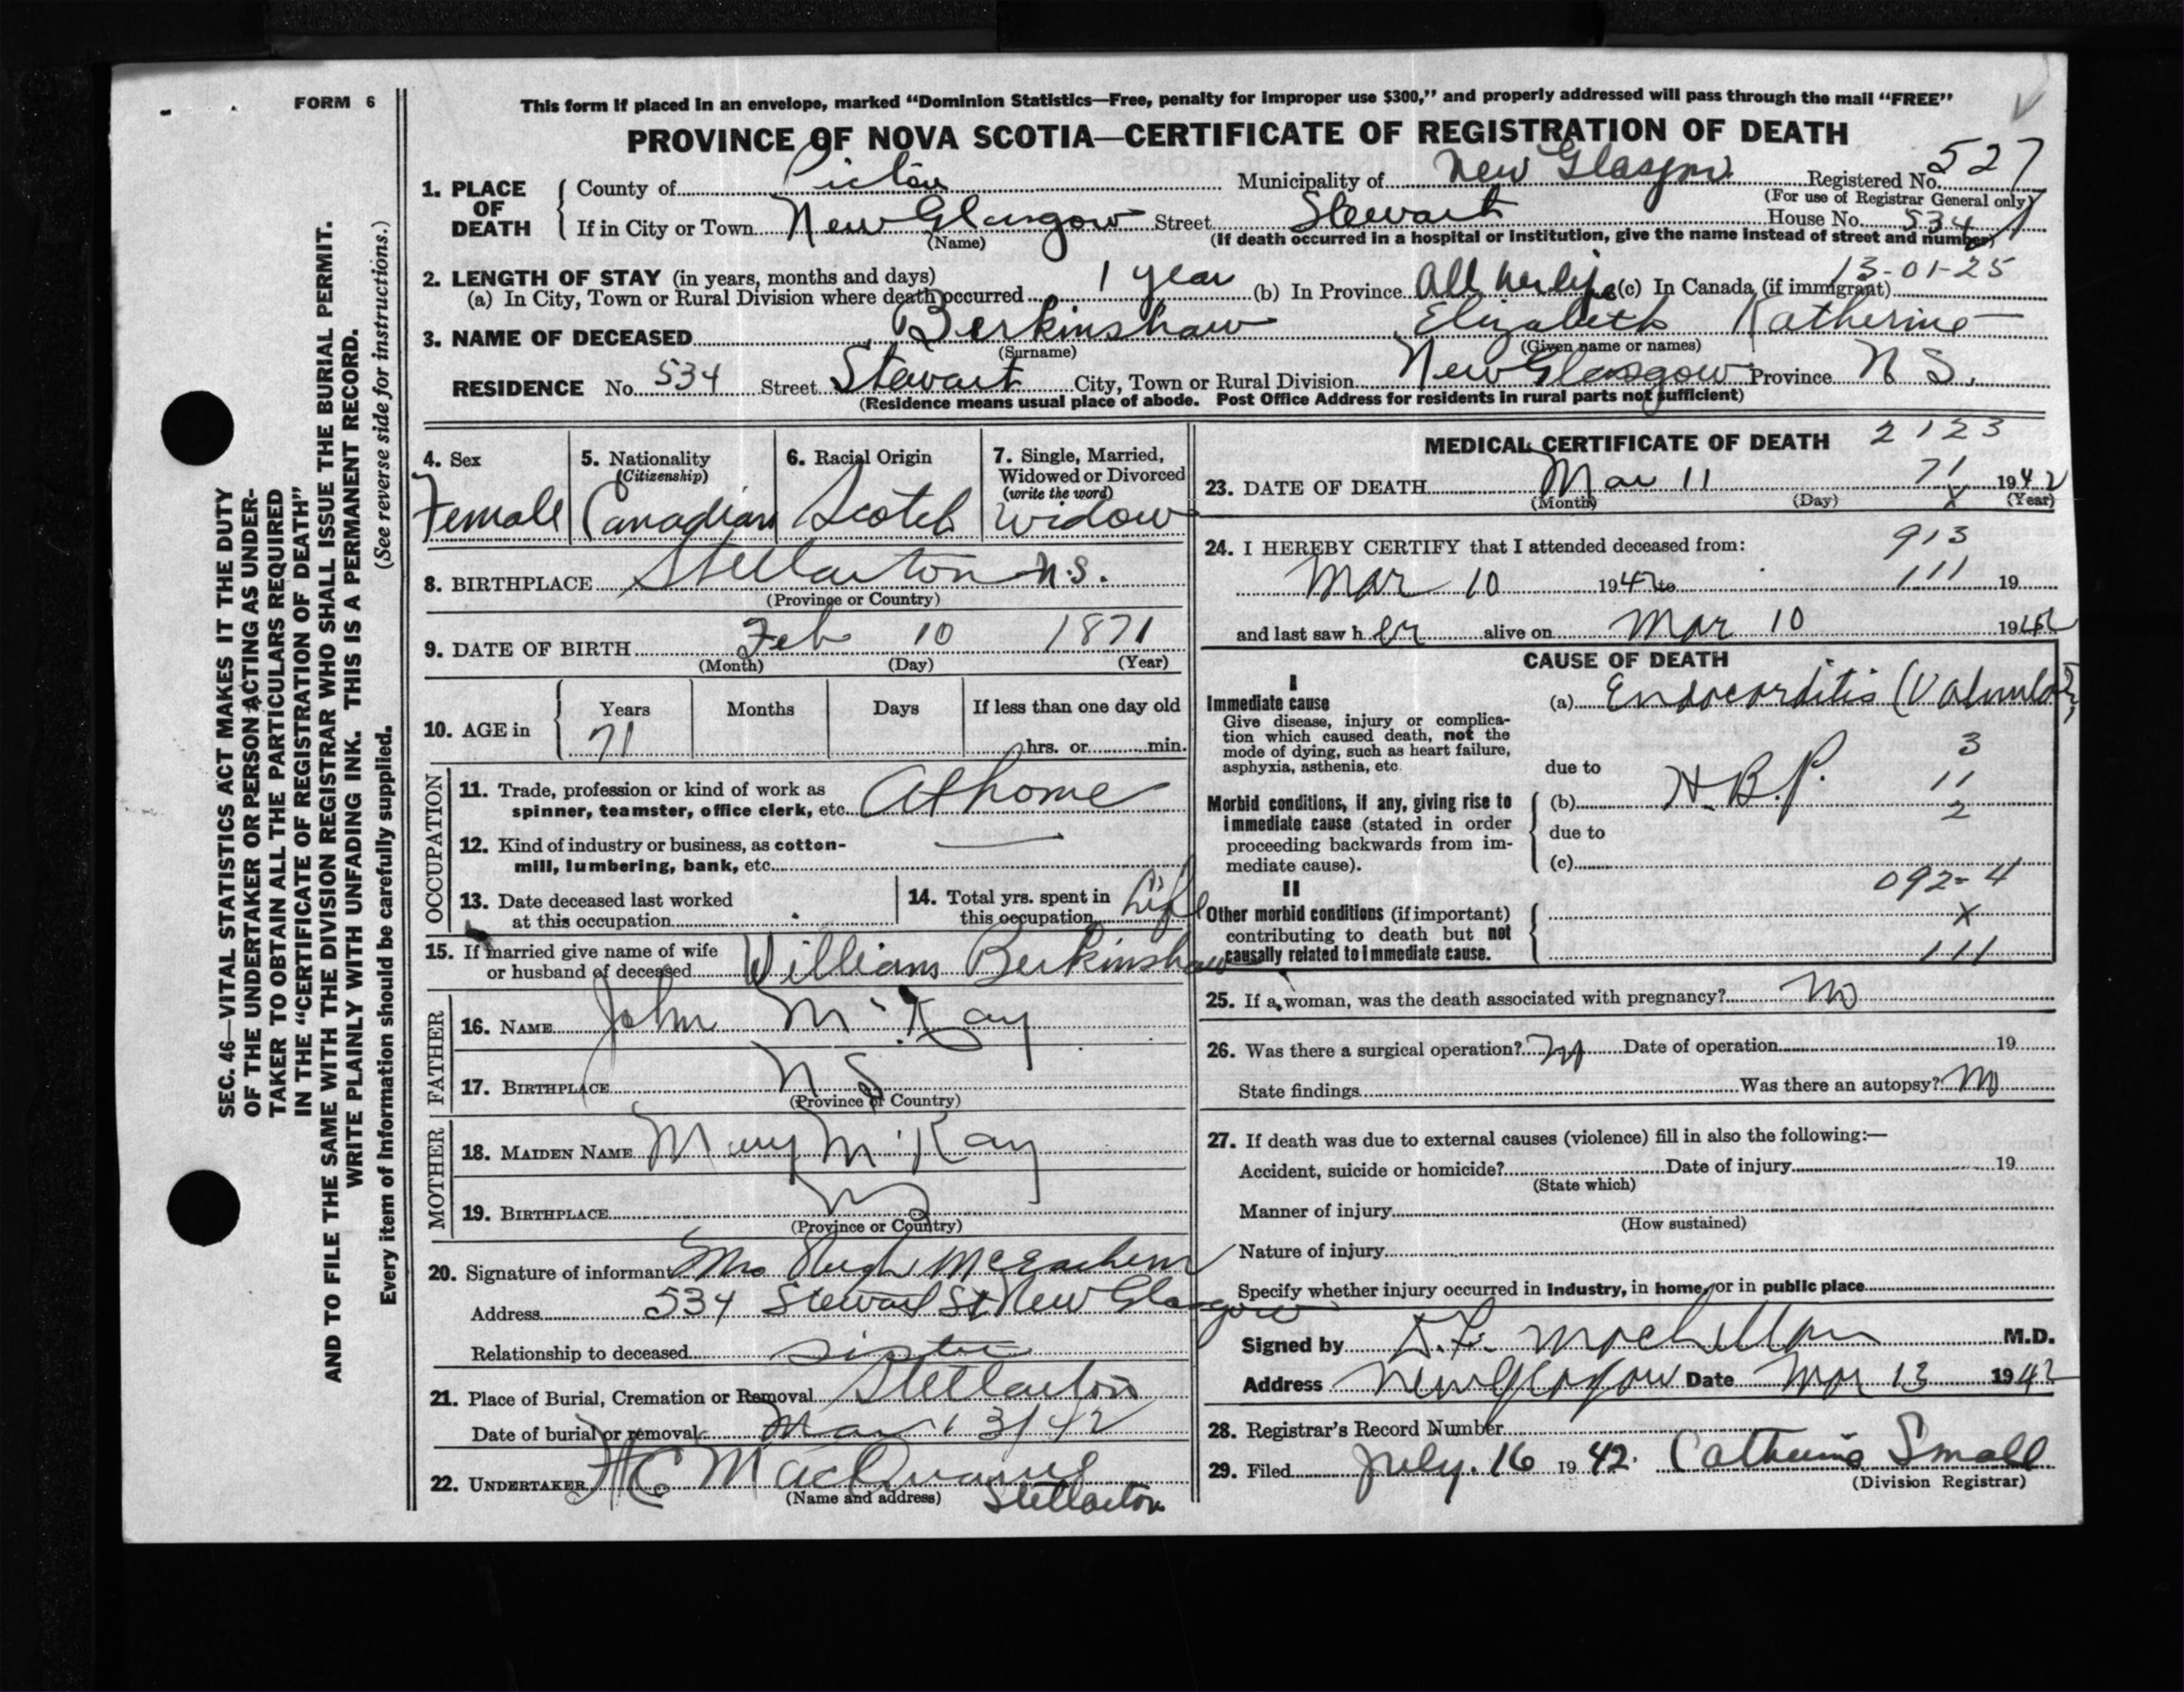 FORM 6
This form if placed in an envelope, marked “Dominion Statistics—Free, penalty for improper use $300,” and properly addressed will pass through the mail “FREE”
PROVINCE OF NOVA SCOTIA—CERTIFICATE OF REGISTRATION OF DEATH
1. PLACE OF DEATH
County of Pictou Municipality of New Glasgow Registered No. 527
(For use of Registrar General only)
If in City or Town New Glasgow Street Stewart House No. 534
(Name) (If death occurred in a hospital or institution, give the name instead of street and number)
2. LENGTH OF STAY (in years, months and days) 13-01-25
(a) In City, Town or Rural Division where death occurred 1 year (b) In Province All her life (c) In Canada (if immigrant)
3. NAME OF DECEASED Berkinshaw Elizabeth Katherine
(Surname) (Given name or names)
RESIDENCE No. 534 Street Stewart City, Town or Rural Division New Glasgow Province N S.
(Residence means usual place of abode. Post Office Address for residents in rural parts not sufficient)
4. Sex
Female
5. Nationality
(Citizenship)
Canadian
6. Racial Origin
Scotch
7. Single, Married,
Widowed or Divorced
(write the word)
Widow
8. BIRTHPLACE Stellarton N.S.
(Province or Country)
9. DATE OF BIRTH Feb 10 1871
(Month) (Day) (Year)
10. AGE in
Years Months Days If less than one day old
71 hrs. or min.
OCCUPATION
11. Trade, profession or kind of work as
spinner, teamster, office clerk, etc. At home
12. Kind of industry or business, as cotton-
mill, lumbering, bank, etc. —
13. Date deceased last worked
at this occupation
14. Total yrs. spent in
this occupation Life
15. If married give name of wife
or husband of deceased William Berkinshaw
FATHER
16. NAME John McKay
17. BIRTHPLACE N S
(Province or Country)
MOTHER
18. MAIDEN NAME Mary McKay
19. BIRTHPLACE
(Province or Country)
20. Signature of informant Mrs Hugh McEachern
Address 534 Stewart St New Glasgow
Relationship to deceased sister
21. Place of Burial, Cremation or Removal Stellarton
Date of burial or removal Mar 13/42
22. UNDERTAKER
(Name and address) Stellarton
MEDICAL CERTIFICATE OF DEATH 2123
23. DATE OF DEATH Mar 11 71 1942
(Month) (Day) X (Year)
24. I HEREBY CERTIFY that I attended deceased from: 913
Mar 10 1942 to 111 19
and last saw her alive on Mar 10 1942
CAUSE OF DEATH
I
Immediate cause
Give disease, injury or complica-
tion which caused death, not the
mode of dying, such as heart failure,
asphyxia, asthenia, etc.
(a) Endocarditis (Valvular)
3
due to
Morbid conditions, if any, giving rise to
immediate cause (stated in order
proceeding backwards from im-
mediate cause).
(b) H.B.P. 11
2
due to
(c)
092-4
II
Other morbid conditions (if important)
contributing to death but not
causally related to immediate cause.
X
111
25. If a woman, was the death associated with pregnancy? No
26. Was there a surgical operation? No Date of operation 19
State findings Was there an autopsy? No
27. If death was due to external causes (violence) fill in also the following:—
Accident, suicide or homicide? Date of injury 19
(State which)
Manner of injury
(How sustained)
Nature of injury
Specify whether injury occurred in industry, in home, or in public place
Signed by M.D.
Address New Glasgow Date Mar 13 1942
28. Registrar's Record Number
29. Filed July. 16 1942. Catherine Small
(Division Registrar)
SEC. 46—VITAL STATISTICS ACT MAKES IT THE DUTY
OF THE UNDERTAKER OR PERSON ACTING AS UNDER-
TAKER TO OBTAIN ALL THE PARTICULARS REQUIRED
IN THE “CERTIFICATE OF REGISTRATION OF DEATH”
AND TO FILE THE SAME WITH THE DIVISION REGISTRAR WHO SHALL ISSUE THE BURIAL PERMIT.
WRITE PLAINLY WITH UNFADING INK. THIS IS A PERMANENT RECORD.
(See reverse side for instructions.)
Every item of information should be carefully supplied.